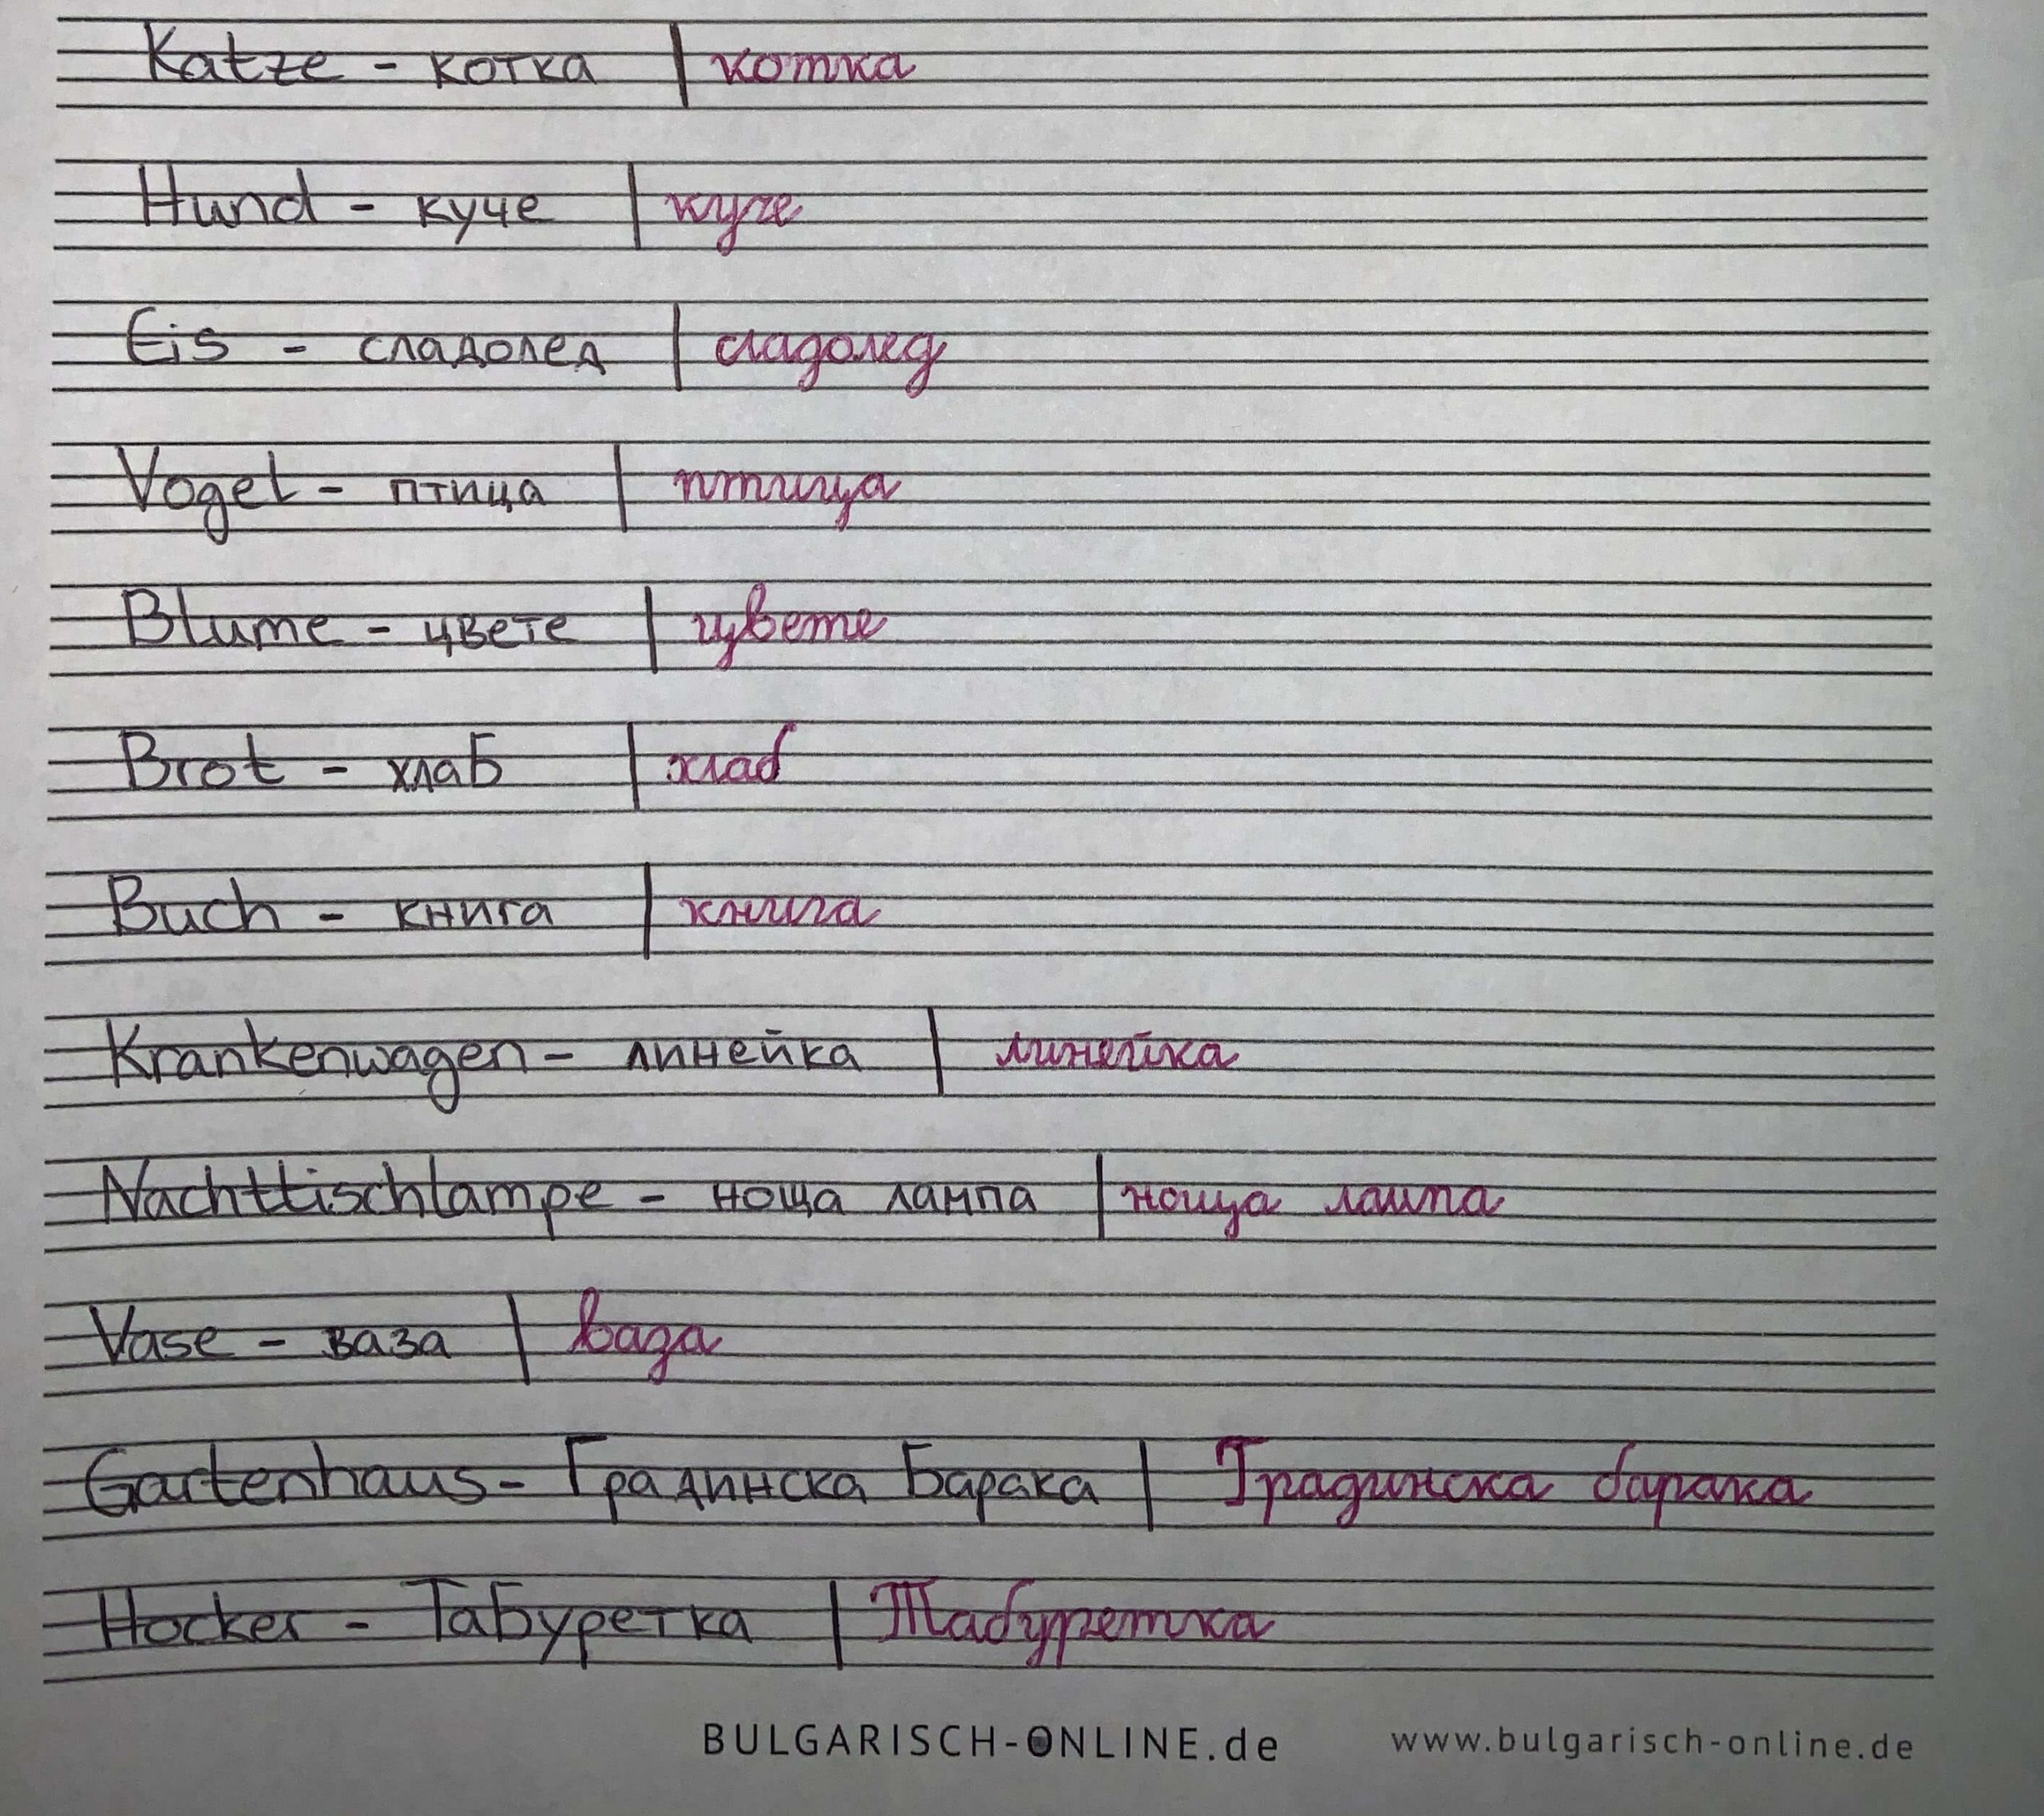 Katze - котка | котка
Hund - куче | куче
Eis - сладолед | сладолед
Vogel - птица | птица
Blume - цвете | цвете
Brot - хлаб | хлаб
Buch - книга | книга
Krankenwagen - линейка | линейка
Nachttischlampe - ноща лампа | ноща лампа
Vase - ваза | ваза
Gartenhaus - Градинска Барака | Градинска барака
Hocker - Табуретка | Табуретка
BULGARISCH-ONLINE.de www.bulgarisch-online.de